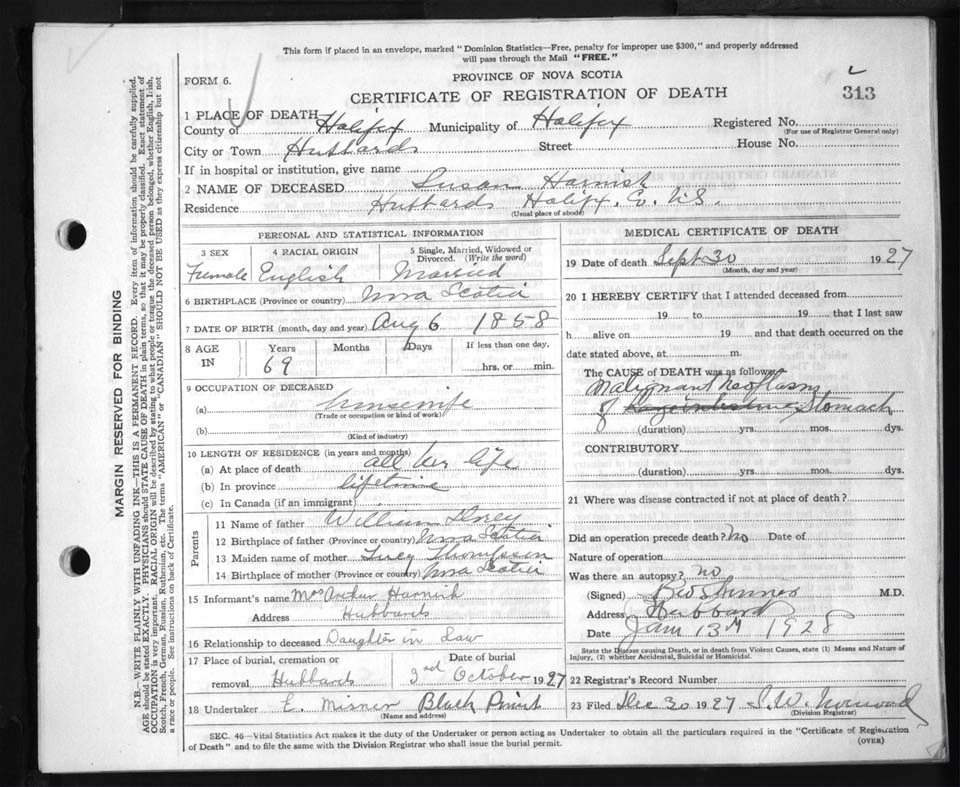 This form if placed in an envelope, marked "Dominion Statistics—Free, penalty for improper use $300," and properly addressed
will pass through the Mail "FREE."
FORM 6.
PROVINCE OF NOVA SCOTIA
CERTIFICATE OF REGISTRATION OF DEATH
313
1 PLACE OF DEATH
County of Halifax Municipality of Halifax Registered No.
(For use of Registrar General only)
City or Town Hubbards Street House No.
If in hospital or institution, give name
2 NAME OF DECEASED Susan Harnish
Residence Hubbards Halifax. Co. N.S.
(Usual place of abode)
PERSONAL AND STATISTICAL INFORMATION
3 SEX 4 RACIAL ORIGIN 5 Single, Married, Widowed or
Divorced. (Write the word)
Female English Married
6 BIRTHPLACE (Province or country) Nova Scotia
7 DATE OF BIRTH (month, day and year) Aug 6 1858
8 AGE IN Years Months Days If less than one day,
69 hrs. or min.
9 OCCUPATION OF DECEASED
(a) housewife
(Trade or occupation or kind of work)
(b)
(Kind of industry)
10 LENGTH OF RESIDENCE (in years and months)
(a) At place of death all her life
(b) In province lifetime
(c) In Canada (if an immigrant)
Parents
11 Name of father William
12 Birthplace of father (Province or country) Nova Scotia
13 Maiden name of mother Lucy Thompson
14 Birthplace of mother (Province or country) Nova Scotia
15 Informant's name Mrs Arthur Harnish
Address Hubbards
16 Relationship to deceased Daughter in Law
17 Place of burial, cremation or Date of burial
removal Hubbards 2nd October 1927
18 Undertaker E. Misner Black Point
(Name and address)
MEDICAL CERTIFICATE OF DEATH
19 Date of death Sept 30 1927
(Month, day and year)
20 I HEREBY CERTIFY that I attended deceased from
19 to 19 that I last saw
h alive on 19 and that death occurred on the
date stated above, at m.
The CAUSE of DEATH was as follows:
Malignant Neoplasm
of Stomach
(duration) yrs. mos. dys.
CONTRIBUTORY
(duration) yrs. mos. dys.
21 Where was disease contracted if not at place of death?
Did an operation precede death? No Date of
Nature of operation
Was there an autopsy? no
(Signed) M.D.
Address Hubbards
Date Jan 13th 1928
State the Disease causing Death, or in death from Violent Causes, state (1) Means and Nature of
Injury, (2) whether Accidental, Suicidal or Homicidal.
22 Registrar's Record Number
23 Filed Dec 30 1927
(Division Registrar)
SEC. 46—Vital Statistics Act makes it the duty of the Undertaker or person acting as Undertaker to obtain all the particulars required in the "Certificate of Registration
of Death" and to file the same with the Division Registrar who shall issue the burial permit.
(OVER)
MARGIN RESERVED FOR BINDING
N.B.—WRITE PLAINLY WITH UNFADING INK—THIS IS A PERMANENT RECORD. Every item of information should be carefully supplied.
AGE should be stated EXACTLY. PHYSICIANS should STATE CAUSE OF DEATH in plain terms, so that it may be properly classified. Exact statement of
OCCUPATION is very important. RACIAL ORIGIN will be described by stating to what people or tongue the deceased person belonged, whether English, Irish,
Scotch, French, German, Russian, Ruthenian, etc. The terms "AMERICAN" or "CANADIAN" SHOULD NOT BE USED as they express citizenship but not
a race or people. See instructions on back of Certificate.